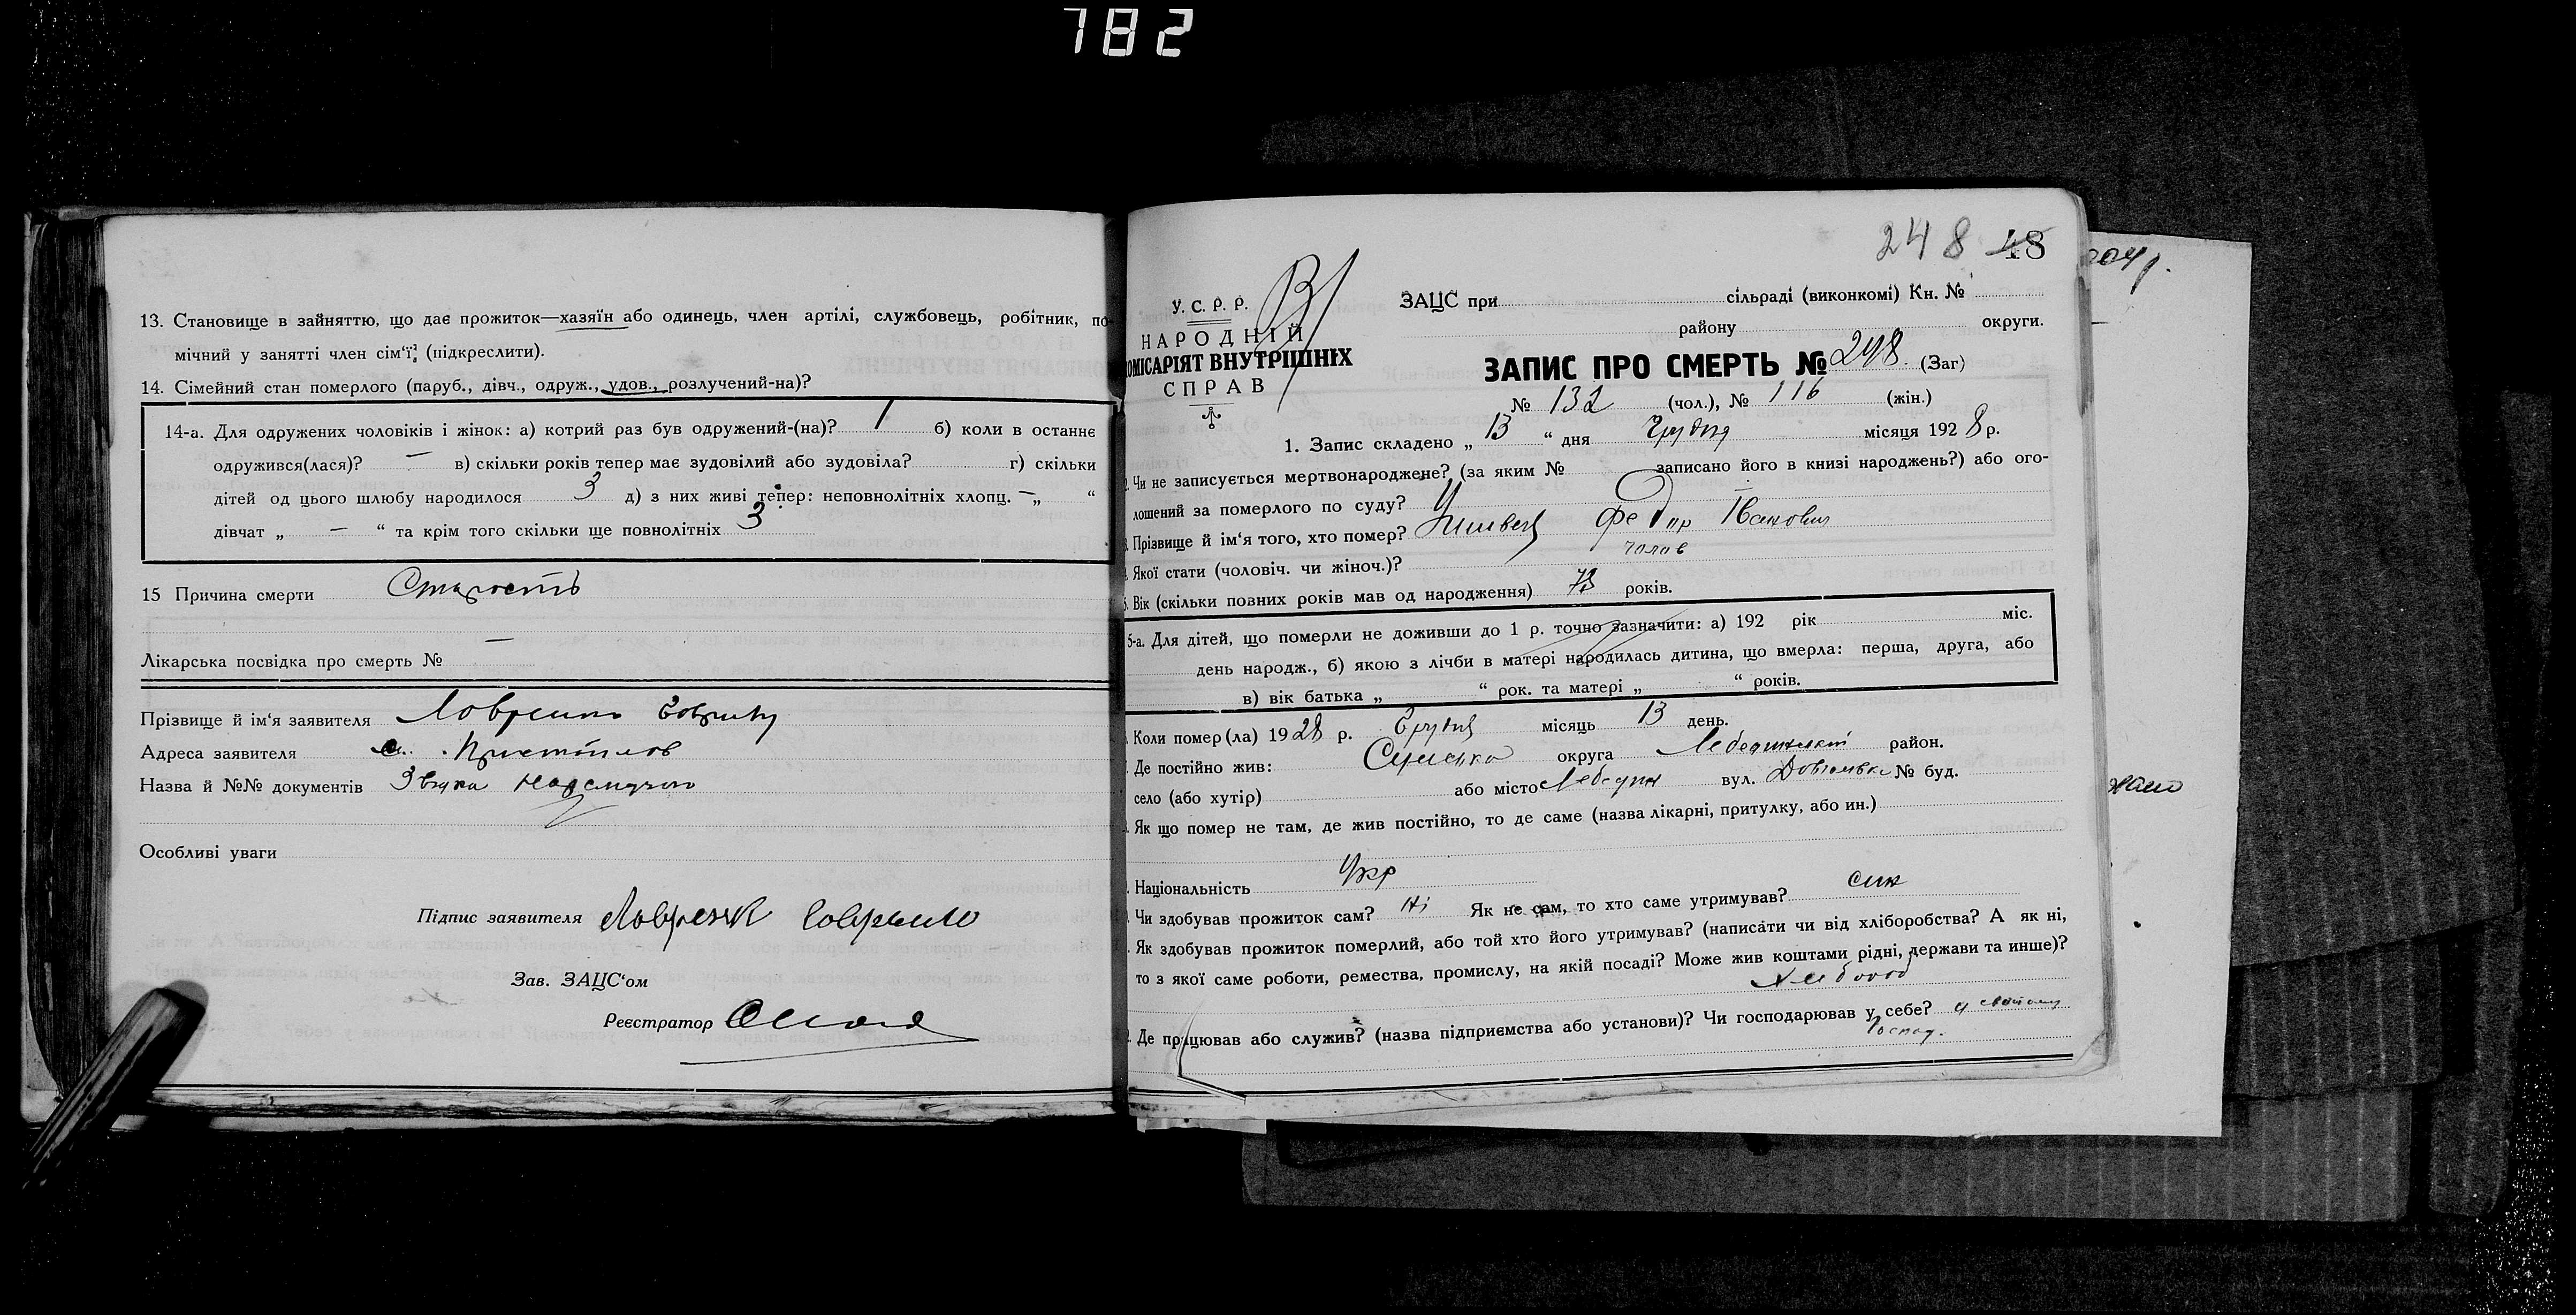 782
13. Становище в зайняттю, що дає прожиток—хазяїн або одинець, член артілі, службовець, робітник, по-
мічний у занятті член сім'ї, (підкреслити).
14. Сімейний стан померлого (паруб., дівч., одруж., удов., розлучений-на)?
14-а. Для одружених чоловіків і жінок: а) котрий раз був одружений-(на)? 1 б) коли в останнє
одружився(лася)? — в) скільки років тепер має зудовілий або зудовіла? г) скільки
дітей од цього шлюбу народилося 3 д) з них живі тепер: неповнолітніх хлопц. — „ “
дівчат „ — “ та крім того скільки ще повнолітніх 3
15 Причина смерти Старость
Лікарська посвідка про смерть № —
Прізвище й ім'я заявителя
Адреса заявителя
Назва й №№ документів
Особливі уваги
Підпис заявителя
Зав. ЗАЦС'ом
Реєстратор
248 48
У. С. Р. Р.
НАРОДНІЙ
КОМІСАРІЯТ ВНУТРІШНІХ
СПРАВ
ЗАЦС при сільраді (виконкомі) Кн. №
району округи.
ЗАПИС ПРО СМЕРТЬ № 248 (Заг)
№ 132 (чол.), № 116 (жін.)
1. Запис складено „ 13 “ дня Грудня місяця 1928 р.
2. Чи не записується мертвонароджене? (за яким № записано його в книзі народжень?) або ого-
лошений за померлого по суду?
Прізвище й ім'я того, хто помер? Федір Іванович
Якої стати (чоловіч. чи жіноч.)? чолов
5. Вік (скільки повних років мав од народження) 73 років.
5-а. Для дітей, що померли не доживши до 1 р. точно зазначити: а) 192 рік міс.
день народж., б) якою з лічби в матері народилась дитина, що вмерла: перша, друга, або
в) вік батька „ “ рок. та матері „ “ років.
Коли помер(ла) 1928 р. Грудня місяць 13 день.
Де постійно жив: Сумська округа Лебединський район.
село (або хутір) або місто Лебедин вул. № буд.
Як що помер не там, де жив постійно, то де саме (назва лікарні, притулку, або ин.)
Національність Укр
Чи здобував прожиток сам? Ні Як не сам, то хто саме утримував? син
Як здобував прожиток померлий, або той хто його утримував? (написати чи від хліборобства? А як ні,
то з якої саме роботи, ремества, промислу, на якій посаді? Може жив коштами рідні, держави та инше)?
хлібороб
Де працював або служив? (назва підприємства або установи)? Чи господарював у себе? у своєму
господ.